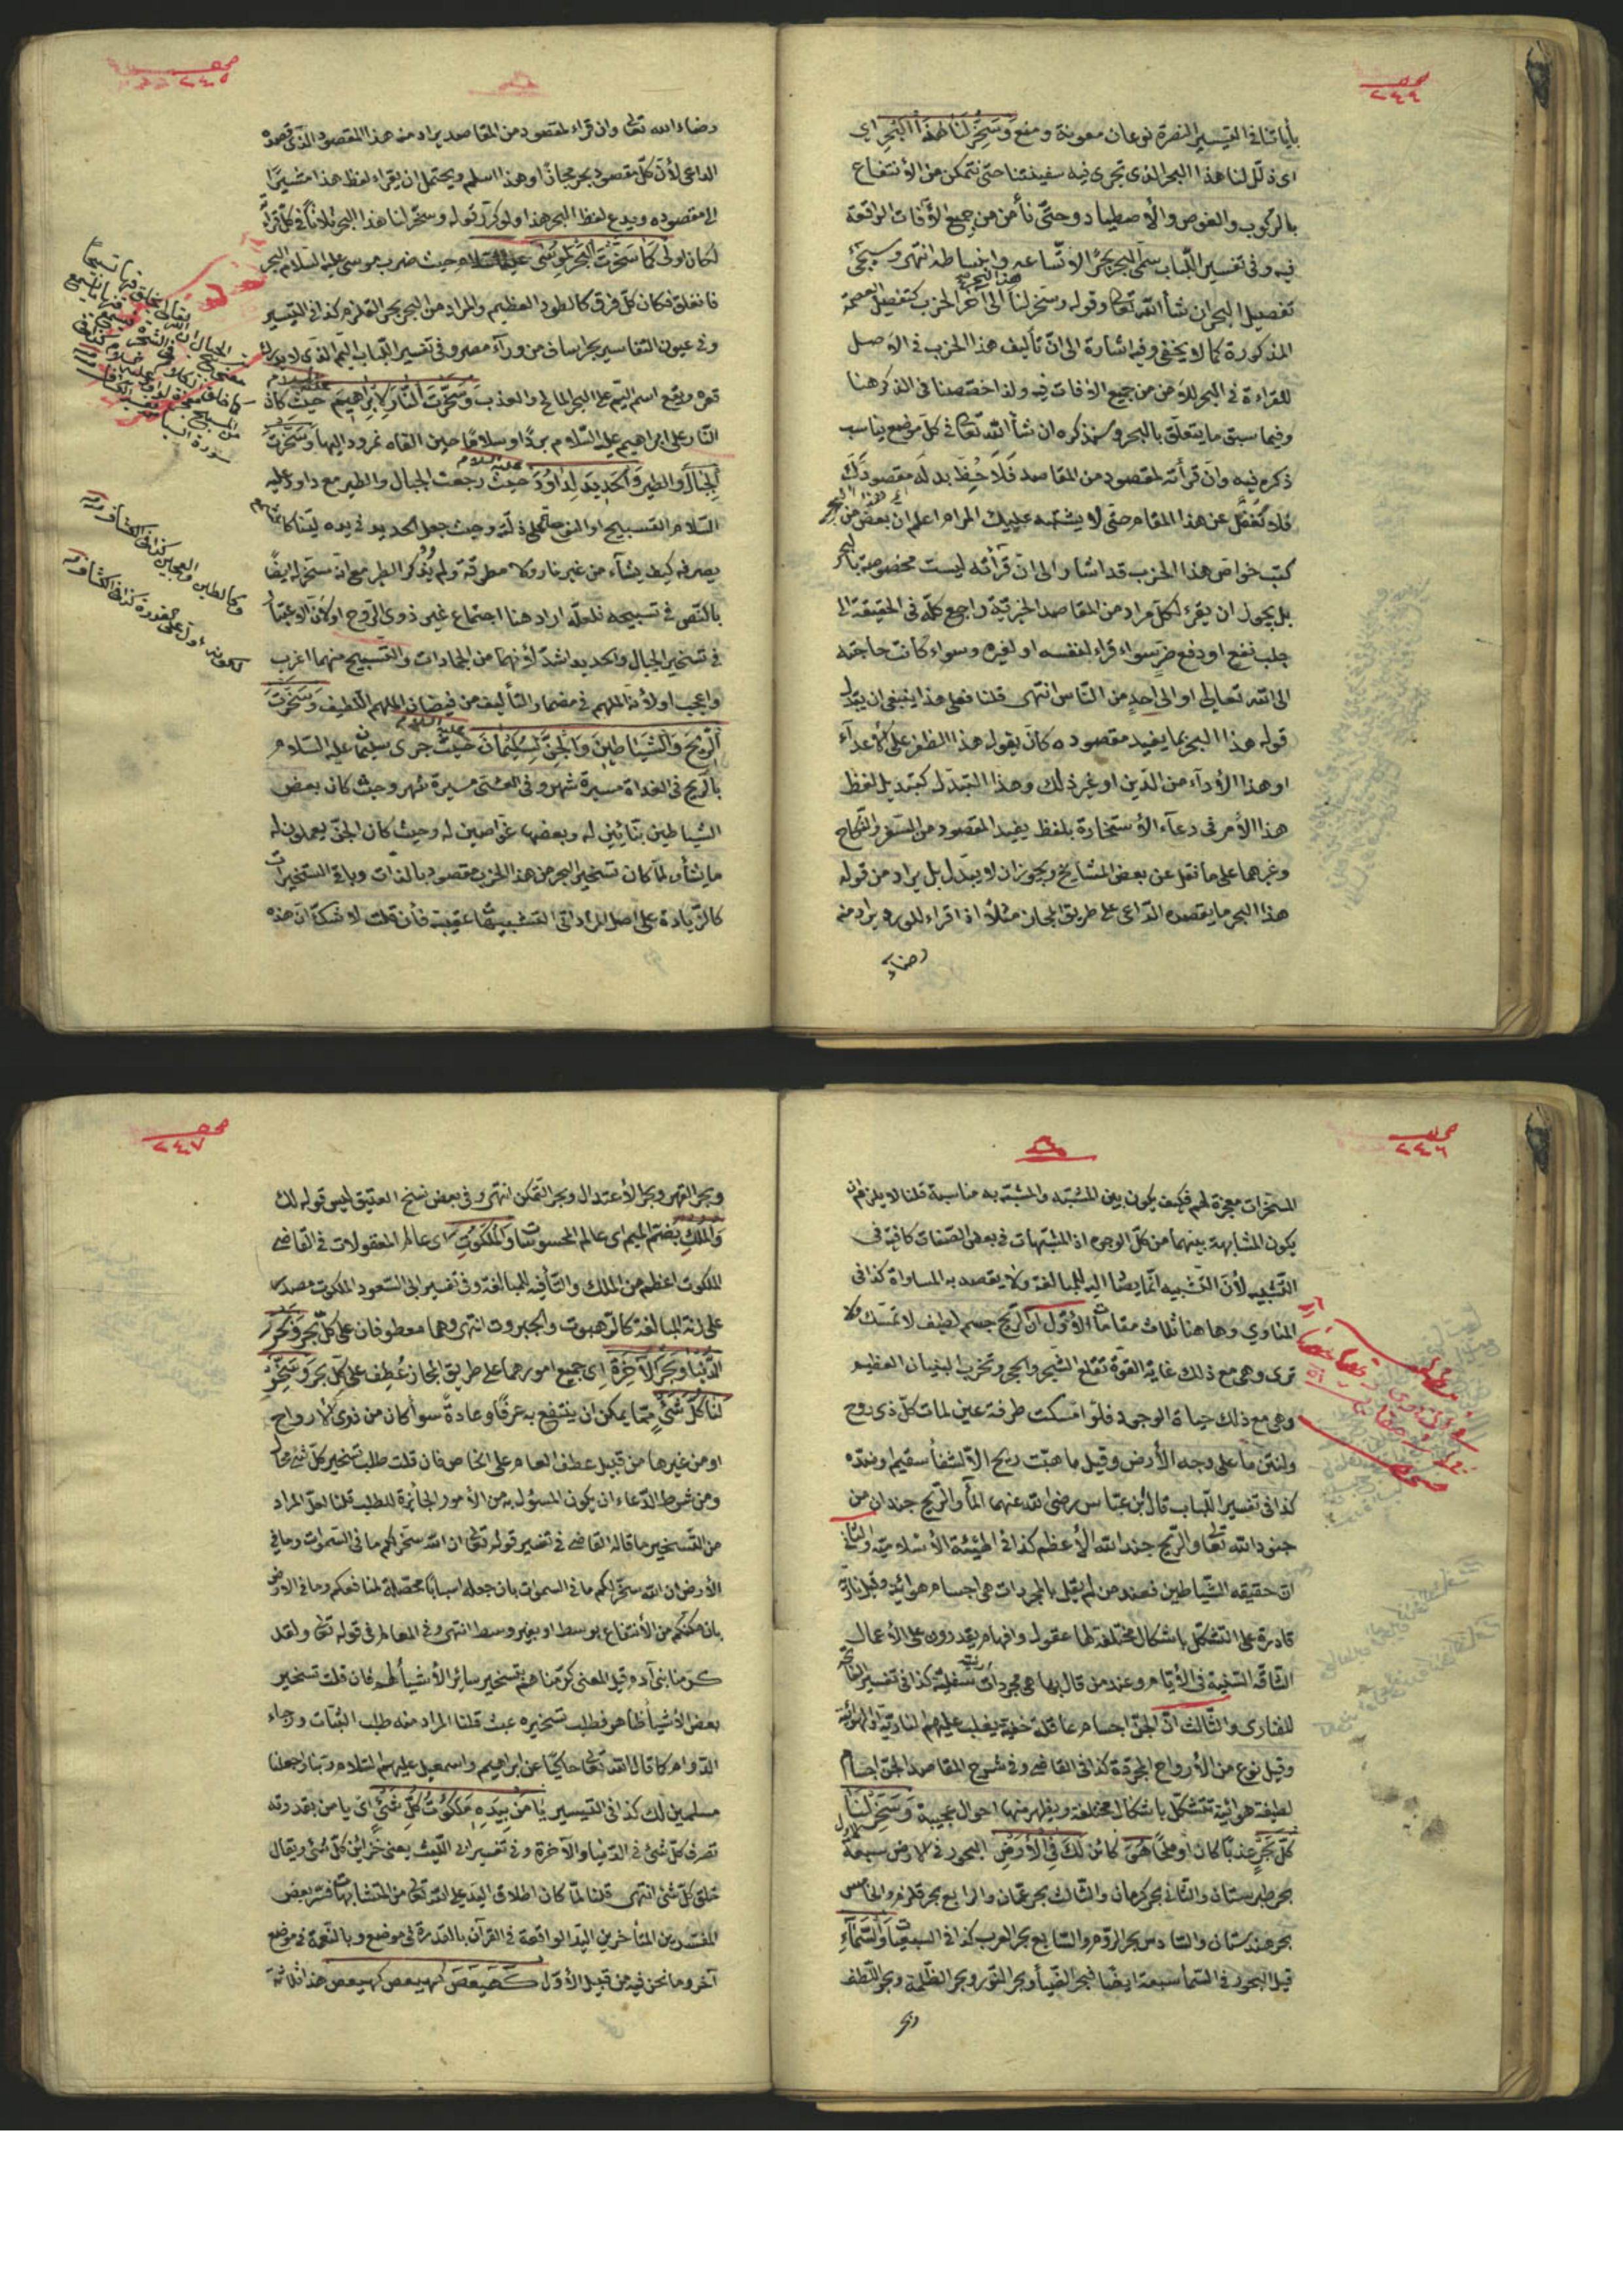 صحـ ٢٤٤
بأياتنا في التيسير النصرة نوعان معونة ومنع وَسَخِّرْ لَنَا هٰذَا الْبَحْرَ اي
اى ذلّل لنا هذا البحر الذى تجرى فيه سفينتنا حتّى نتمكن من الأنتفاع
بالرّكوب والغوص والأصطياد وحتّى نأمن من جميع الأفات الواقعة
فيه وفى تفسير اللّباب سمّى البحر بحرًا لاتّساعه وانبساطه انتهى وسيجئ
تفصيل البحر ان شأ الله تعالى وقوله وسخر لنا هذا البحر الى اخر الحزب كتفصيل العصمة
المذكورة كما لا يخفى وفيه اشارة الى انّ تأليف هذا الحزب فى الأصل
للقراءة فى البحر للأمن من جميع الافات فيه ولذا خصّصنا فى الذكر هنا
وفيما سبق ما يتعلّق بالبحر وسنذكره ان شأ الله تعالى فى كلّ موضع يناسب
ذكره فيه وان قرأته لمقصود من المقاصد فلاحِظ بدله مقصودك
فلا تغفل عن هذا المقام حتّى لا يشتبه عليك المرام اعلم ان بعض من
كتب خواصّ هذا الحزب قد اشار الى ان قرأته ليست مخصوصة بالبحر
بل يجوز ان يقرء لكلّ مراد من المقاصد الجزئيّة راجع كلّه فى الحقيقة الى
جلب نفع او دفع ضرّ سواء قراء لنفسه او لغيره وسواء كانت حاجته
الى الله تعالى او الى احد من النّاس انتهى قلنا فعلى هذا ينبغى ان يبدّل
قوله هذا البحر بما يفيد مقصوده كان يقول هذا الظفر على الأعداء
او هذا الأداء من الدّين او غير ذلك وهذا التبدّل كتبديل لفظ
هذا الأمر فى دعاء الأستخارة بلفظ يفيد المقصود من السّفر والنّكاح
وغيرهما على ما نقل عن بعض المشايخ ويجوز ان لا يبدّل بل يراد من قوله
هذا البحر ما يقصده الدّاعى على طريق المجاز مثلًا اذا قراء للـ يراد منه
رضاء
صحـ ٢٤٥
رضاء الله تعالى وان قراء لمقصود من المقاصد يراد منه هذا المقصود الّذى قصده
الداعى لأنّ كلّ مقصود بحر مجازًا وهذا اسلم ويحتمل ان يقراء لفظ هذا مشيرًا
الى مقصوده ويدع لفظ البحر هذا ولو كرّر قوله وسخّر لنا هذا البحر ثلاثًا فى كلّ قراءة
لكان اولى كَمَا سَخَّرْتَ الْبَحْرَ لِمُوسٰى عليه السّلام حيث ضرب موسى عليه السّلام البحر
فانفلق فكان كلّ فرق كالطود العظيم والمراد من البحر بحر القلزم كذا فى التيسير
وفى عيون التفاسير بحر اساف من وراء مصر وفى تفسير اللّباب اليمّ الذى لا يدرك
قعره ويقع اسم اليمّ على البحر المالح والعذب وَسَخَّرْتَ النَّارَ لِإِبْرَاهِيمَ عليه السلام حيث كان
النّار على ابراهيم عليه السّلام بردًا وسلامًا حين القاه نمرود اليها وَسَخَّرْتَ
الْجِبَالَ والطير وَالْحَدِيدَ لِدَاوُدَ عليه السلام حيث رجعت الجبال والطير مع داود عليه
السّلام التسبيح او النوح على ذلّة وحيث جعل الحديد فى يده ليّنا كالشمع
يصرفه كيف يشاء من غير نار ولا مطرقة ولم يذكر الطير مع انّه مسخّر له ايضًا
بالنّص فى تسبيحه فلعلّه اراد هنا اجتماع غير ذوى الرّوح او لأنّ الاعتبار
فى تسخير الجبال والحديد اشدّ لأنهما من الجمادات والتّسبيح منهما اغرب
واعجب او لأنّه الملهم فى مضمار التأليف من فيضان الملهم اللطيف وَسَخَّرْتَ
الرِّيحَ وَالشَّيَاطِينَ وَالْجِنَّ لِسُلَيْمَانَ عليه السلام حيث جرى سليمان عليه السّلام
بالرّيح فى الغداة مسيرة شهر وفى العشى مسيرة شهر وحيث كان بعض
الشّياطين بنّائين له وبعضها غوّاصين له وحيث كان الجنّ يعملون له
ما يشأ ولمّا كان تسخير البحر من هذا الحزب مقصود بالذّات وباقى التسخيرات
كالزّيادة على اصل المراد اتى التشبيهات عقيبه فأن قلت لا شكّ انّ هذه
صحـ ٢٤٦
المسخّرات معجزة لهم فكيف يكون بين المشبّه والمشبّه به مناسبة قلنا لا يلزم ان
يكون المشابهة بينهما من كلّ الوجوه اذ المشبّهات فى بعض الصّفات كافية فى
التّشبيه لأنّ التّشبيه انّما يصار اليه للمبالغة ولا يقصد به المساواة كذا فى
المناوى وهاهنا ثلاث مقامات الأوّل انّ الرّيح جسم لطيف لا تمسّك ولا
ترى وهى مع ذلك غاية القوّة تقلع الشّجر والحجر وتخرّب البنيان العظيم
وهى مع ذلك حياة الوجود فلو امسكت طرفة عين لمات كلّ ذى روح
ولنتن ما على وجه الأرض وقيل ما هبّت ريح الّا لشفأ سقيم او ضدّه
كذا فى تفسير اللّباب قال بن عبّاس رضى الله عنهما المأ والرّيح جندان من
جنود الله تعالى والرّيح جند الله الأعظم كذا فى الهيئة الأسلاميّة والثّانى
انّ حقيقة الشّياطين فعند من لم يقل بالمجرّدات هى اجسام هوائيّة وقيل ناريّة
قادرة على التشكّل باشكال مختلفة لها عقول وافهام يقدرون على الأعمال
الشّاقّة السّنيّة فى الأيّام وعند من قال بها هى مجرّدات سفليّة كذا فى تفسير الفاتحة
للفنارى والثّالث انّ الجنّ اجسام عاقلة خفيّة يغلب عليهم النّاريّة او الهوائيّة
وقيل نوع من الأرواح المجرّدة كذا فى القاضى وفى شرح المقاصد الجنّ اجسام
لطيفة هوائيّة تتشكّل باشكال مختلفة ويظهر منها احوال عجيبة وَسَخِّرْ لَنَا
كُلَّ بَحْرٍ عذبًا كان او ملحًا هُوَ كائن لَكَ فِى الْأَرْضِ البحور فى الارض سبعة الاول
بحر طبرستان والثّانى بحر كرمان والثّالث بحر عمّان والرّابع بحر قلزم والخامس
بحر هندستان والسّادس بحر الرّوم والسّابع بحر العرب كذا فى السبعيّات وَالسَّمَاءِ
قيل البحور فى السّمأ سبعة ايضًا بحر الضّيأ وبحر النّور وبحر الظّلمة وبحر اللّطف
وبحر
صحـ ٢٤٧
وبحر القهر وبحر الأعتدال وبحر التمكّن انتهى وفى بعض نسخ العتيق ليس قوله لك
وَالْمُلْكِ بضمّ الميم اى عالم المحسوسات وَالْمَلَكُوتِ اى عالم المعقولات فى القاضى
الملكوت اعظم من الملك والتّأ فيه للمبالغة وفى تفسير ابى السّعود الملكوت مصدر
على زنة المبالغة كالرّهبوت والجبروت انتهى وهما معطوفان على كلّ بحر وَبَحْرَ
الدُّنْيَا وَبَحْرَ الْآخِرَةِ اى جميع امورهما على طريق المجاز عُطِف على كلّ بحر وَسَخِّرْ
لَنَا كُلَّ شَيْءٍ ممّا يمكن ان ينتفع به عرفًا وعادةً سواء كان من ذوى الارواح
او من غيرها من قبيل عطف العام على الخاصّ فان قلت طلب تسخير كلّ شئ محال
ومن شرط الدّعاء ان يكون المسؤل به من الأمور الجائزة للطلب قلنا لعلّ المراد
من التّسخير ما قاله القاضى فى تفسير قوله تعالى ان الله سخّر لكم ما فى السّموات وما فى
الأرض ان الله سخّر لكم ما فى السموات بان جعله اسبابًا محصّلة لمنافعكم وما فى الارض
بان مكّنكم من الأنتفاع بوسط او بغير وسط انتهى وفى المعالم فى قوله تعالى ولقد
كرّمنا بنى آدم قيل المعنى كرّمناهم بتسخير سائر الأشيأ لهم فان قلت تسخير
بعض الأشيأ ظاهر فطلب تسخيره عبث قلنا المراد منه طلب الثّبات ورجاء
الدّوام كما قال الله تعالى حاكيًا عن ابراهيم واسمعيل عليهما السّلام ربّنا واجعلنا
مسلمين لك كذا فى التيسير يَا مَنْ بِيَدِهِ مَلَكُوتُ كُلِّ شَيْءٍ اى يا من بقدرته
تصرف كلّ شئ فى الدّنيا والآخرة وفى تفسير ابى اللّيث يعنى خزائن كلّ شئ ويقال
خلق كلّ شئ انتهى قلنا لمّا كان اطلاق اليد على الله تعالى من المتشابهات فسّر بعض
المفسّرين المتأخرين اليد الواقعة فى القرآن بالقدرة فى موضع وبالنّعمة فى موضع
آخر وما نحن فيه من قبيل الأوّل كٓهٰيٰعٓصٓ كهيعص كهيعص هذا ثلاثة